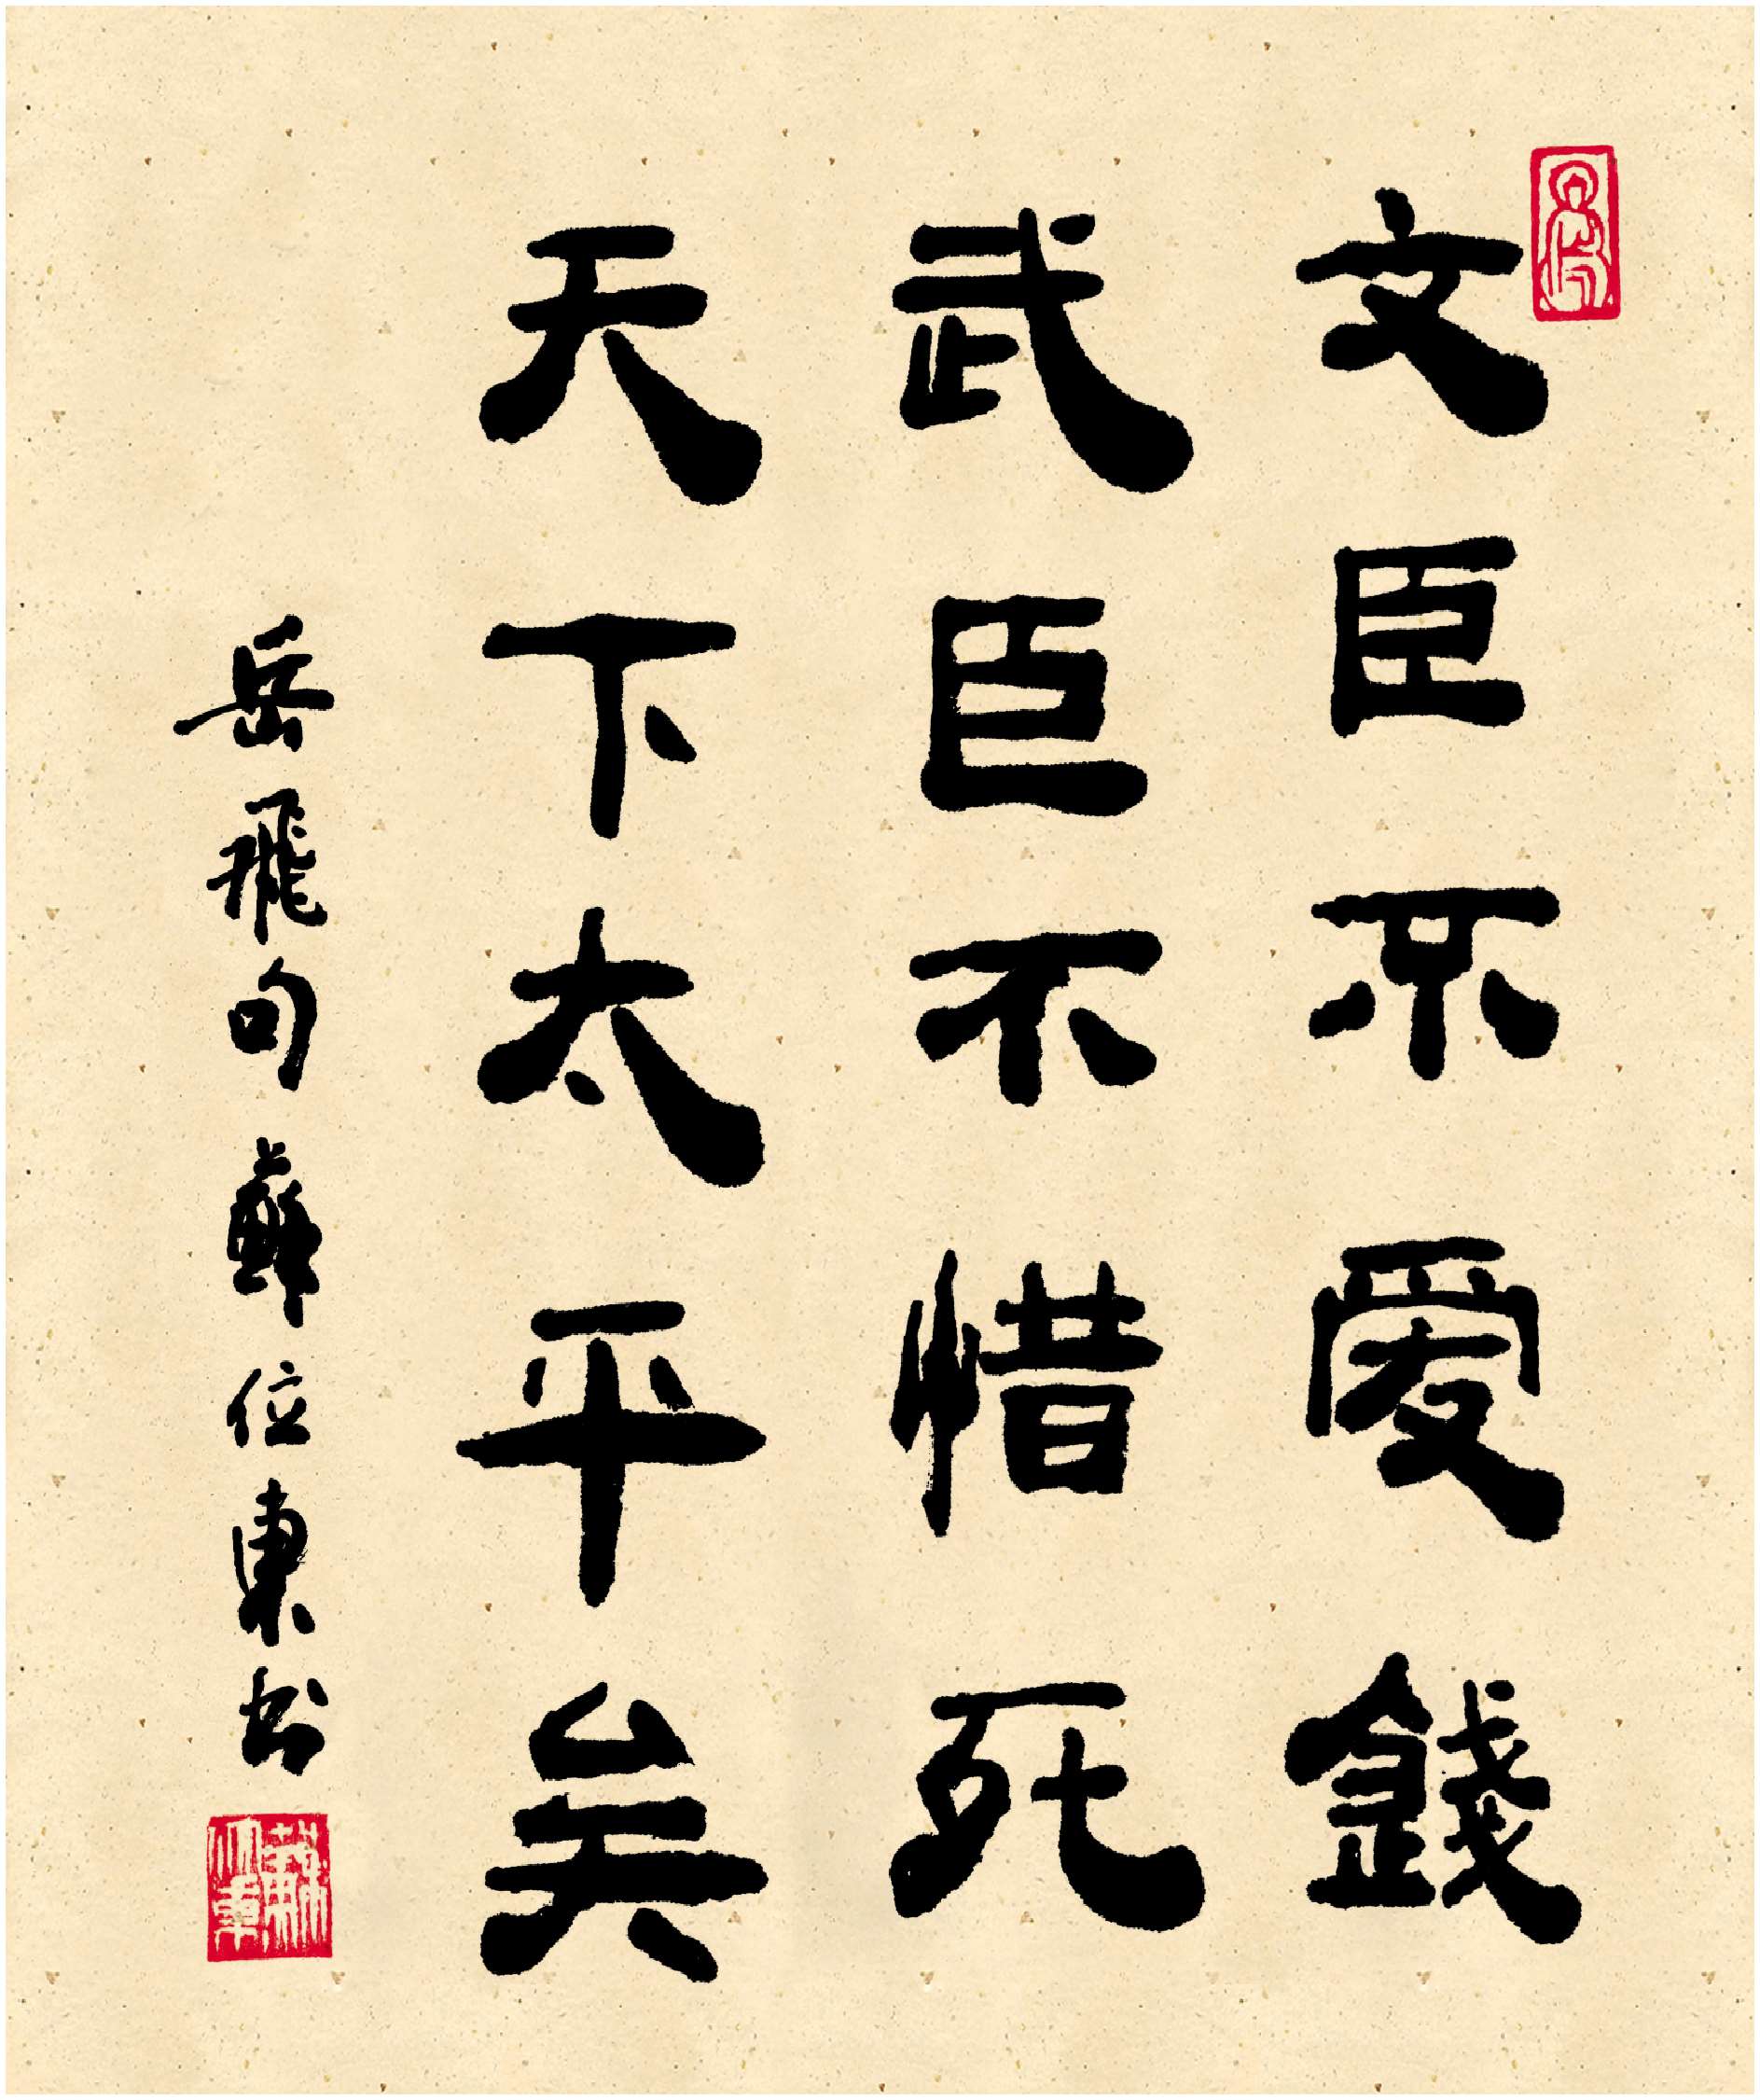 文臣不愛錢
武臣不惜死
天下太平矣
岳飛句蘇位東书
蘇位東